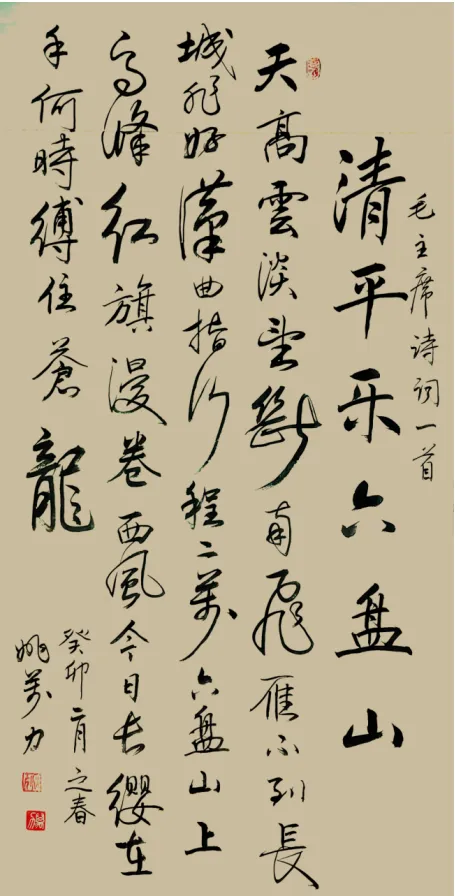 毛主席诗词一首
清平乐六盘山
天髙雲淡望斷南飛雁不到長
城非好漢曲指行程二萬六盘山上
高峰红旗漫卷西風今日长纓在
手何時縛住蒼龍
癸卯二月之春
姚萬力